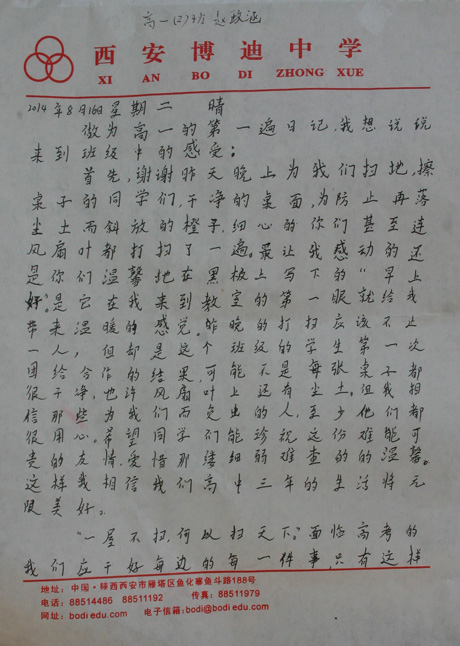 高一(2)班 赵致涵
西安博迪中学
XI AN BO DI ZHONG XUE
2014年8月16日星期二 晴
做为高一的第一遍日记,我想说说
来到班级中的感受;
首先,谢谢昨天晚上为我们扫地,擦
桌子的同学们,干净的桌面,为防止再落
尘土而斜放的橙子,细心的你们甚至连
风扇叶都打扫了一遍。最让我感动的还
是你们温馨地在黑板上写下的“早上
好”。是它在我来到教室的第一眼就给我
带来温暖的感觉。昨晚的打扫应该不止
一人,但却是这个班级的学生第一次
团给合作的结果,可能不是每张桌子都
很干净,也许风扇叶上还有尘土。但我相
信那些为我们而交出的人,至少他们都
很用心。希望同学们能珍视这份难能可
贵的友情,爱惜那缕细弱难查的的温馨。
这样我相信我们高中三年的生活将无
限美好。
“一屋不扫,何以扫天下。”面临高考的
我们应干好每边的每一件事,只有这样
地址：中国·陕西西安市雁塔区鱼化寨鱼斗路188号
电话：88514486 88511192 传真：88511979
网址：bodi edu.com 电子信箱:bodi@bodi edu.com